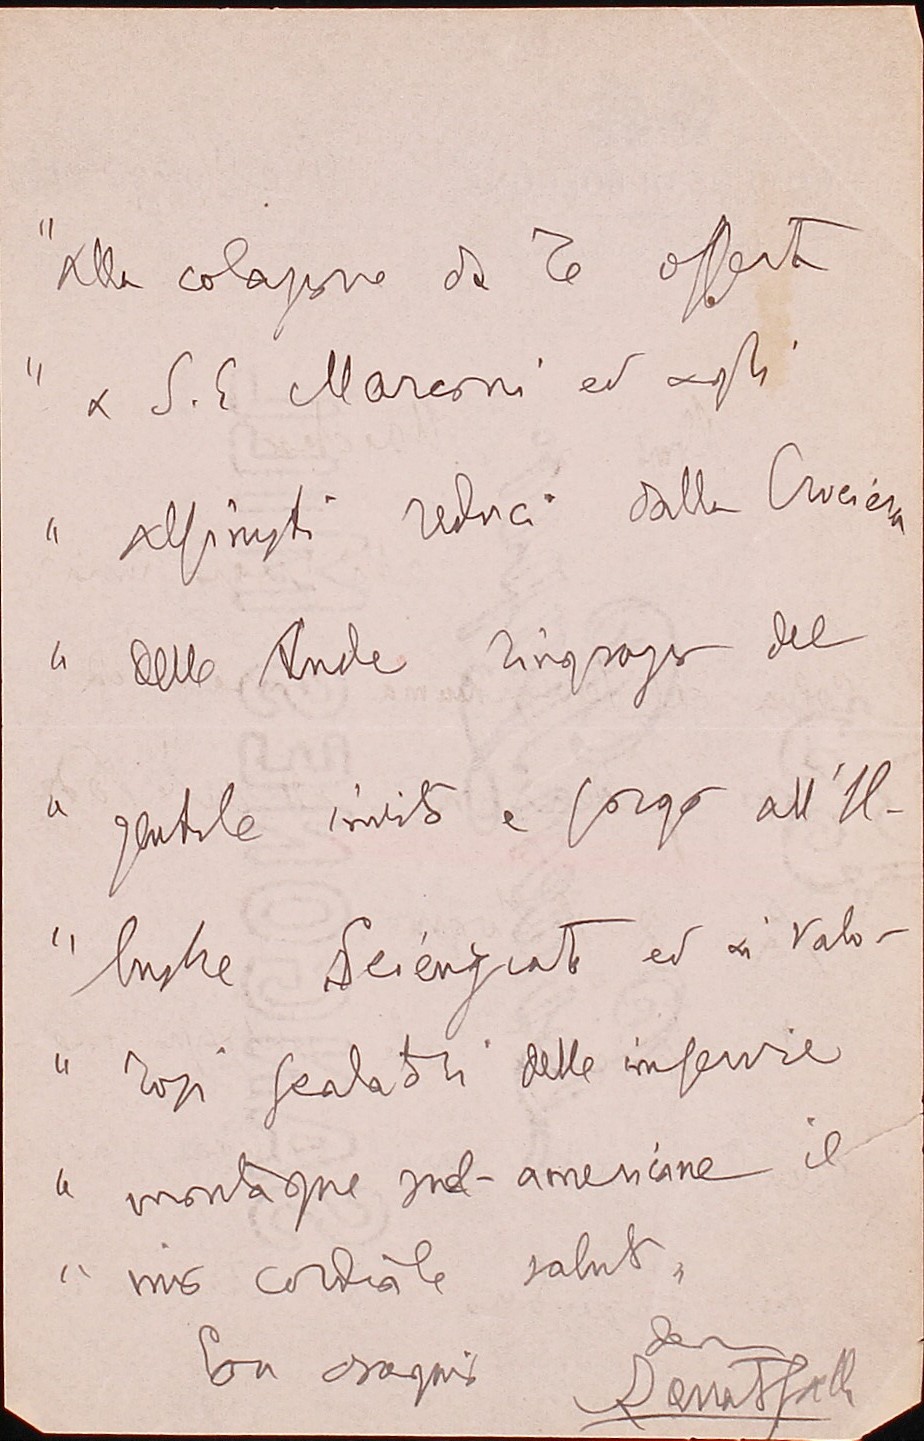 "Alla colazione da Te offerta
" a S.E Marconi ed agli
" Alpinisti reduci dalla Crociera
" delle Ande ringrazio del
" gentile invito e porgo all'Il-
" lustre Scienziato ed ai valo-
" rosi scalatori delle impervie
" montagne sud-americane il
" mio cordiale saluto "
Con ossequio